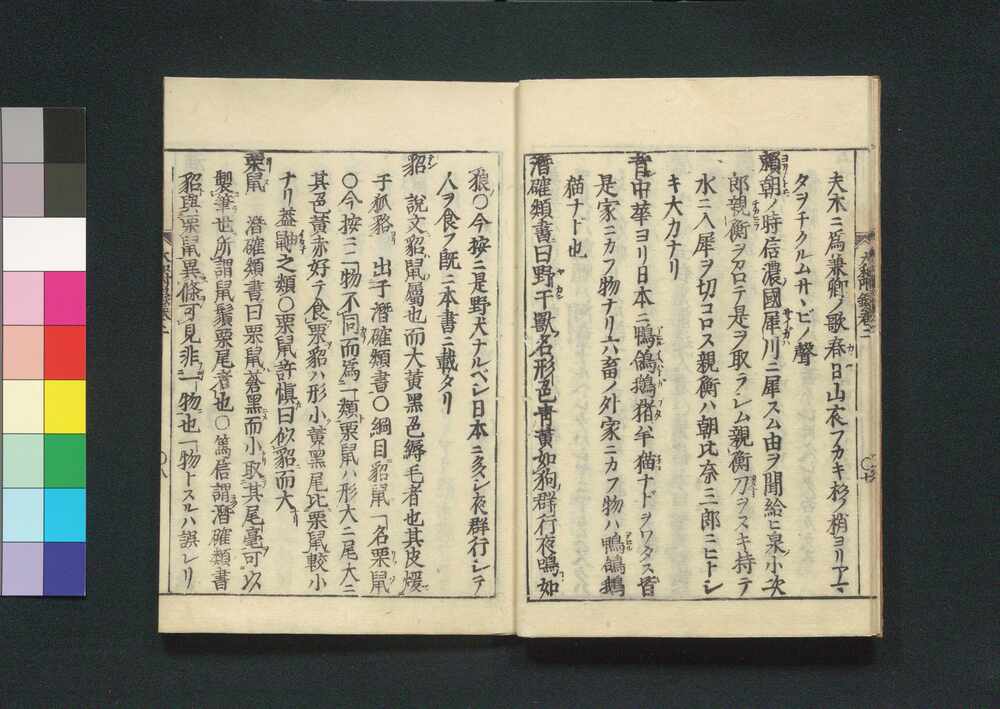 夫木ニ爲兼卿ノ歌春日山夜フカキ杉ノ梢ヨリアマ
タヲチクルムサヽビノ聲
賴朝ノ時信濃國犀川ニ犀スム由ヲ聞給ヒ泉小次
郎親衡ヲカロテ是ヲ取ラシム親衡刀ヲヌキ持テ
水ニ入犀ヲ切コロス親衡ハ朝比奈三郎ニヒトシ
キ大カナリ
昔中華ヨリ日本ニ鴨鴿鵝猪羊猫ナドヲワタス皆
是家ニカフ物ナリ六畜ノ外家ニカフ物ハ鴨鴿鵝
猫ナト也
潛確類書曰野干獸名形色青黄如狗群行夜鳴如
狼○今按ニ是野犬ナルベシ日本ニ多シ夜群行シテ
人ヲ食フ既ニ本書ニ載タリ
貂 說文貂鼠屬也而大黄黑色縟毛者也其皮煖
于狐貉 出于潛確類書○綱目貂鼠一名栗鼠
○今按ニ二物不同而爲一類栗鼠ハ形大ニ尾大ニ
其色黄赤好テ食栗貂ハ形小黄黑尾比栗鼠較小
ナリ蓋鼬之類○栗鼠許愼曰似貂而大
栗鼠 潛確類書曰栗鼠蒼黑而小取其尾毫可以
製筆世所謂鼠鬚栗尾者也○篤信謂潛確類書
貂與栗鼠異條可見非一物也一物トスルハ誤レリ